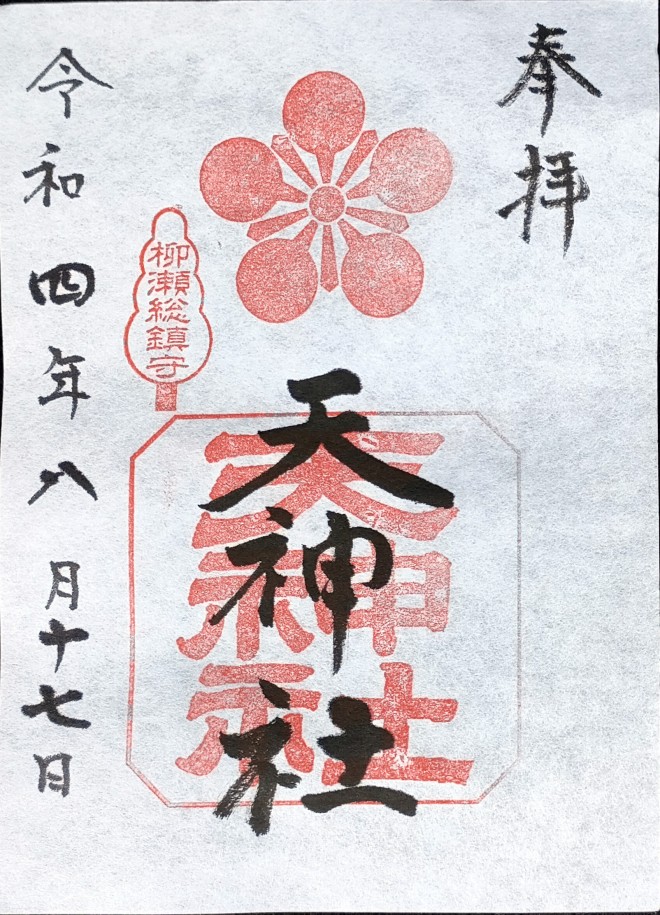 奉拝
柳瀬総鎮守
天神社
天神社
令和四年八月十七日